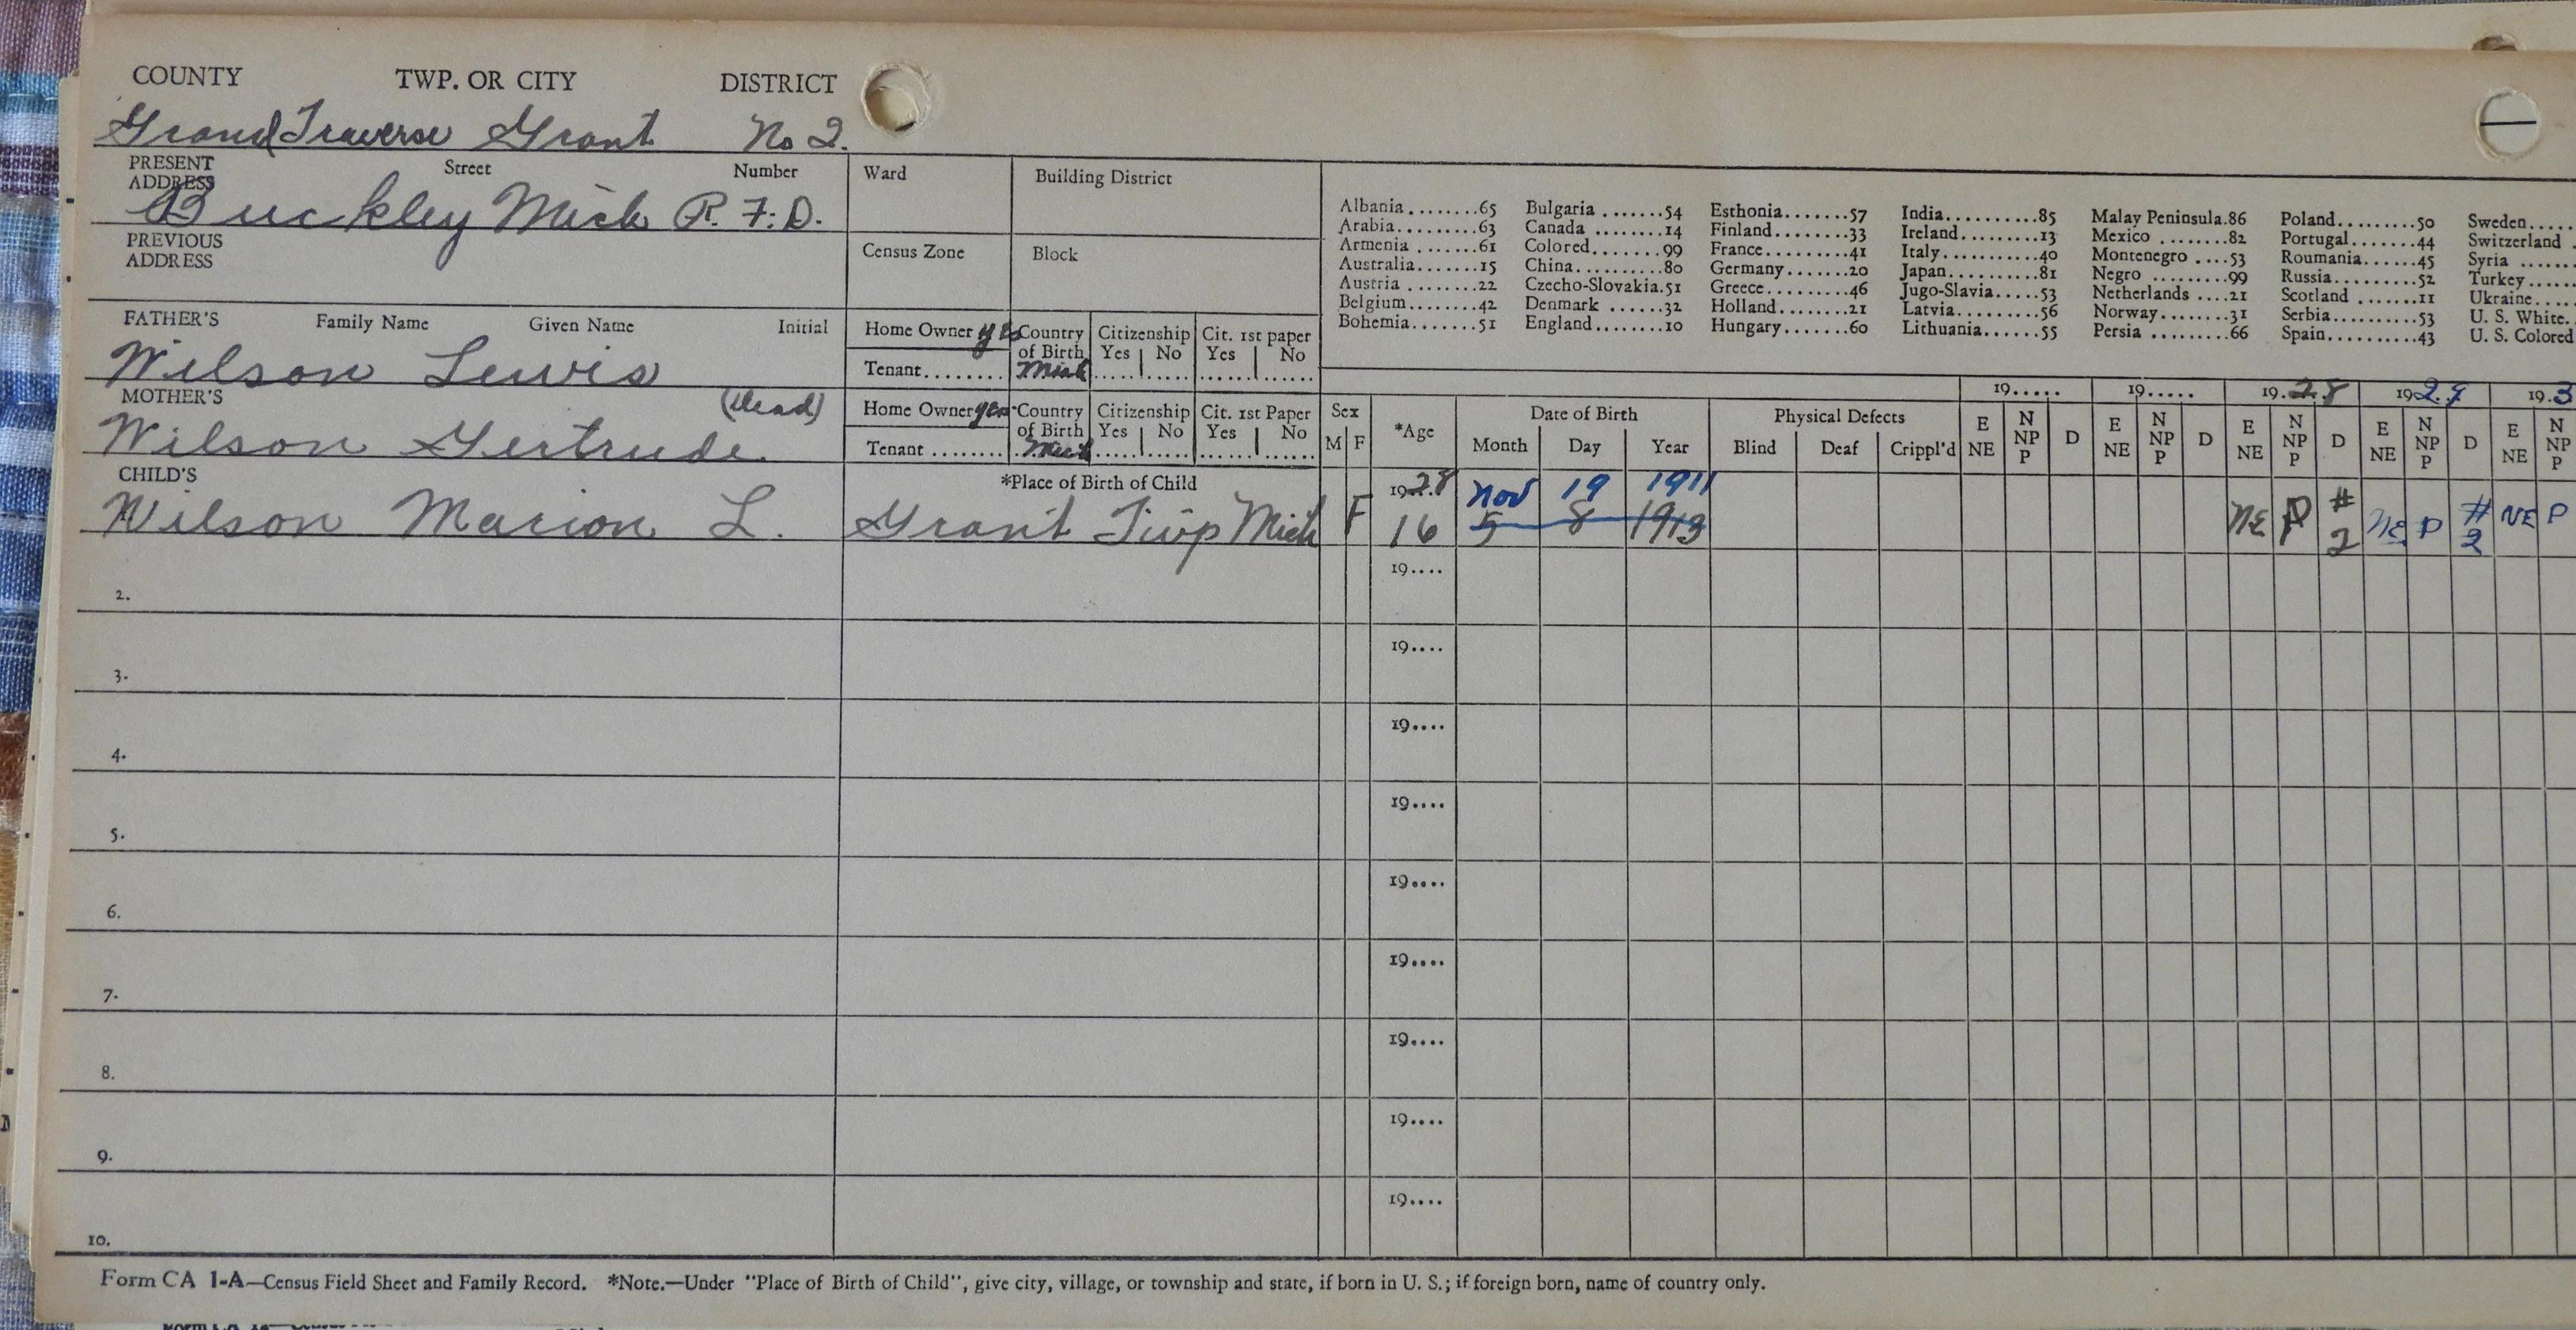 COUNTY TWP. OR CITY DISTRICT
Grand Traverse Grant No 2.
PRESENT ADDRESS Street Number
Buckley Mich R.F.D.
Ward
Building District
PREVIOUS ADDRESS
Census Zone
Block
Albania........65 Bulgaria .......54 Esthonia.......57 India..........85 Malay Peninsula.86 Poland.........50 Sweden.....
Arabia.........63 Canada ........14 Finland........33 Ireland.........13 Mexico ........82 Portugal.......44 Switzerland .
Armenia .......61 Colored........99 France.........41 Italy...........40 Montenegro ....53 Roumania......45 Syria ......
Australia.......15 China..........80 Germany.......20 Japan..........81 Negro .........99 Russia.........52 Turkey.....
Austria ........22 Czecho-Slovakia.51 Greece.........46 Jugo-Slavia.....53 Netherlands ....21 Scotland .......11 Ukraine....
Belgium........42 Denmark .......32 Holland........21 Latvia..........56 Norway.........31 Serbia..........53 U. S. White.
Bohemia.......51 England........10 Hungary.......60 Lithuania.......55 Persia .........66 Spain..........43 U. S. Colored
FATHER'S Family Name Given Name Initial
Wilson Lewis
Home Owner yes
Tenant........
Country of Birth Mich
Citizenship Yes | No
Cit. 1st paper Yes | No
MOTHER'S (Dead)
Wilson Gertrude
Home Owner yes
Tenant ........
Country of Birth Mich
Citizenship Yes | No
Cit. 1st Paper Yes | No
19..... 19..... 1928 1929 193
Sex M F *Age Date of Birth Month Day Year Physical Defects Blind Deaf Crippl'd
E NE N NP P D E NE N NP P D E NE N NP P D E NE N NP P D E NE N NP P
CHILD'S *Place of Birth of Child
1928 Nov 19 1911
Wilson Marion L. Grant Twp Mich F 16 5 8 1913 NE P #2 NE P #2 NE P
2. 19....
3. 19....
4. 19....
5. 19....
6. 19....
7. 19....
8. 19....
9. 19....
10. 19....
Form CA 1-A—Census Field Sheet and Family Record. *Note.—Under "Place of Birth of Child", give city, village, or township and state, if born in U. S.; if foreign born, name of country only.